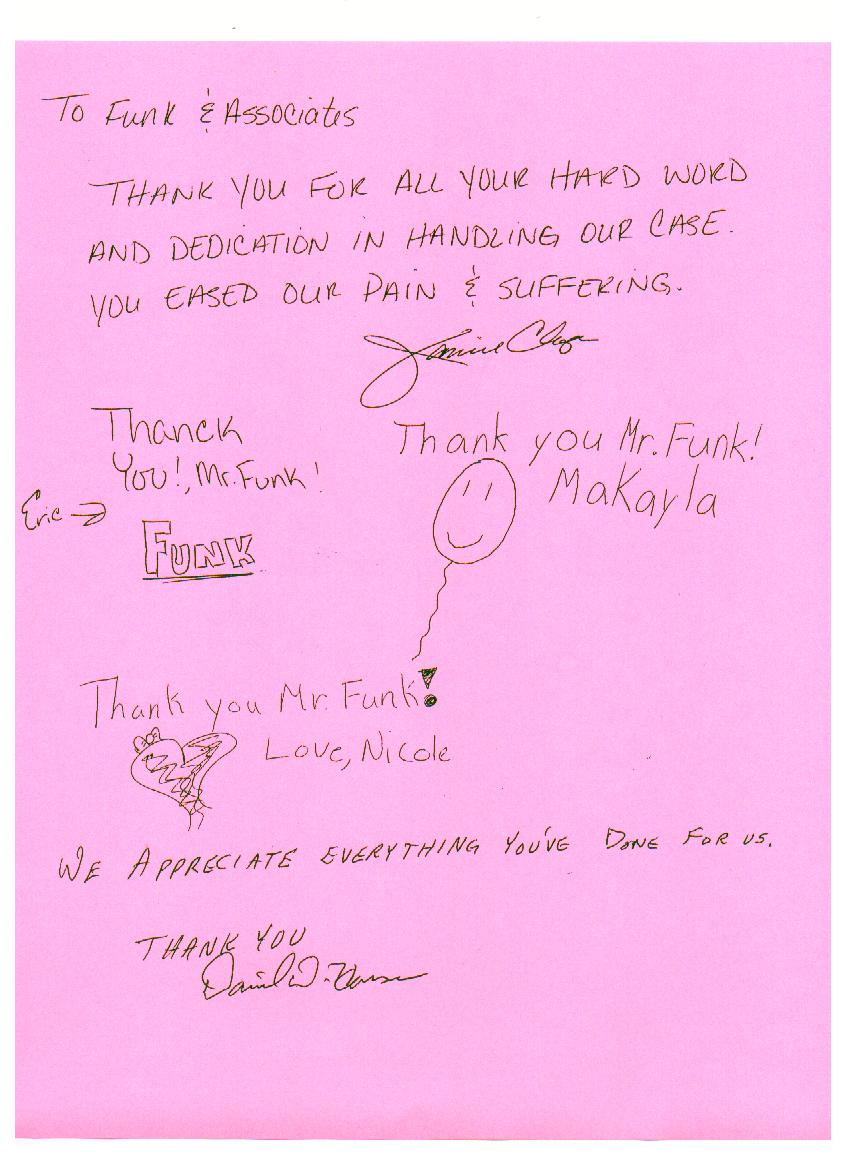 To Funk & Associates
THANK YOU FOR ALL YOUR HARD WORD
AND DEDICATION IN HANDLING OUR CASE.
YOU EASED OUR PAIN & SUFFERING.
Thanck
You!, Mr. Funk!
Eric →
FUNK
Thank you Mr. Funk!
Makayla
Thank you Mr. Funk!
Love, Nicole
WE APPRECIATE EVERYTHING YOU'VE DONE FOR US.
THANK YOU